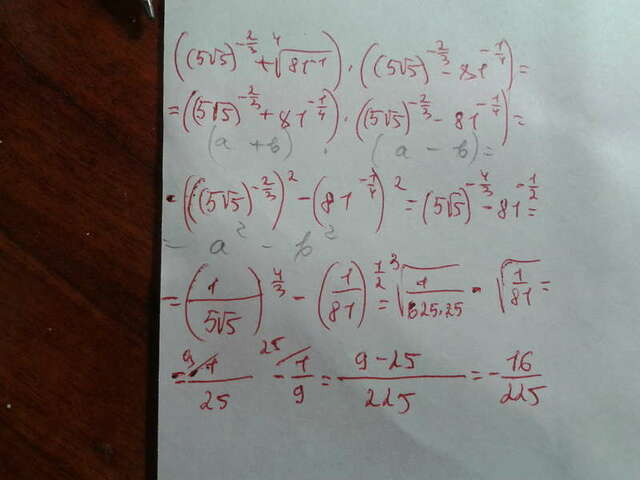 ((5√5)^(-2/3) + ⁴√(81⁻¹)) · ((5√5)^(-2/3) - 81^(-1/4)) =
= ((5√5)^(-2/3) + 81^(-1/4)) · ((5√5)^(-2/3) - 81^(-1/4)) =
(a + b) · (a - b) =
· ((5√5)^(-2/3))² - (81^(-1/4))² = (5√5)^(-4/3) - 81^(-1/2) =
= a² - b²
= (1/(5√5))^(4/3) - (1/81)^(1/2) = ³√(1/(625·25)) - √(1/81) =
= ⁹⁄1/25 - ²⁵⁄1/9 = (9-25)/225 = -16/225